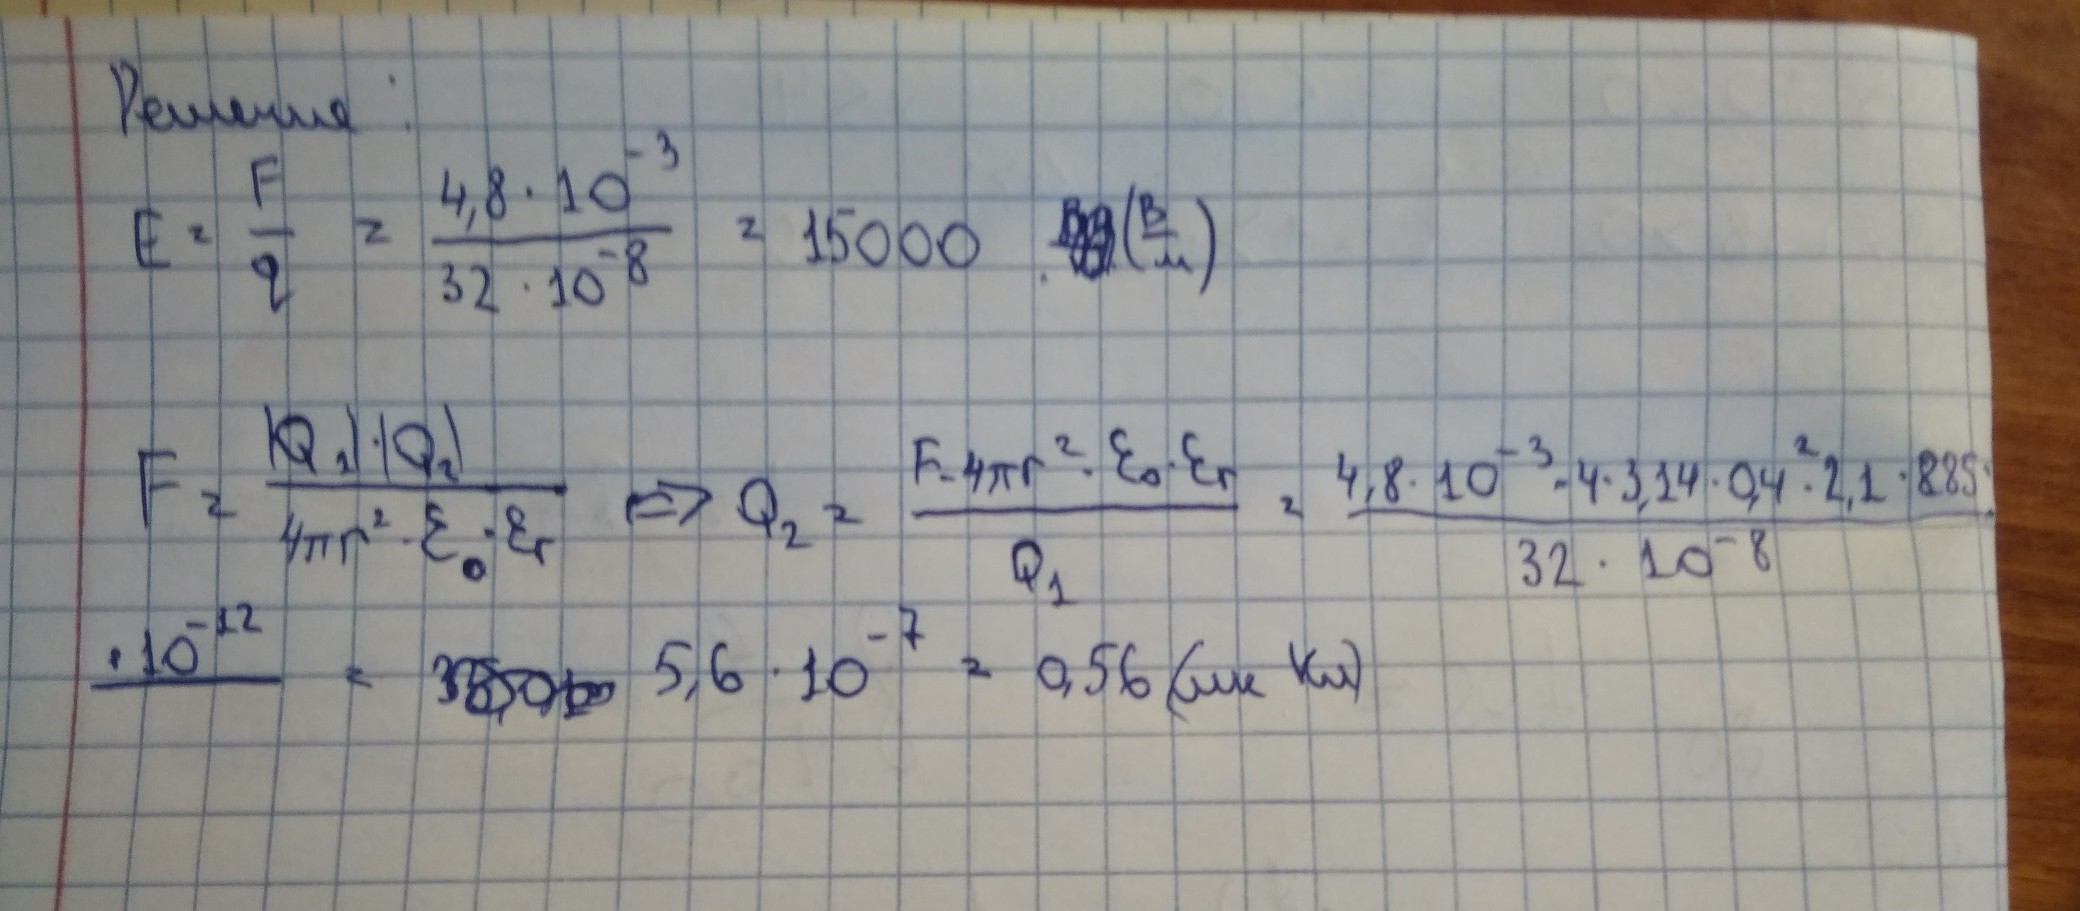 Решение :
E = F/q = 4,8 · 10⁻³ / 32 · 10⁻⁸ = 15000 (В/м)
F = |Q₁| · |Q₂| / 4πr² · ε₀ · εr <=> Q₂ = F · 4πr² · ε₀ · εr / Q₁ = 4,8 · 10⁻³ · 4 · 3,14 · 0,4² · 2,1 · 885 · / 32 · 10⁻⁸
· 10⁻¹² = 5,6 · 10⁻⁷ = 0,56 (мк Кл)